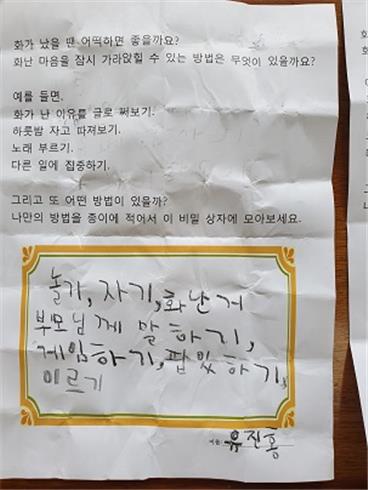 화가 났을 땐 어떡하면 좋을까요?
화난 마음을 잠시 가라앉힐 수 있는 방법은 무엇이 있을까요?
예를 들면,
화가 난 이유를 글로 써보기.
하룻밤 자고 따져보기.
노래 부르기.
다른 일에 집중하기.
그리고 또 어떤 방법이 있을까?
나만의 방법을 종이에 적어서 이 비밀 상자에 모아보세요.
놀기, 자기, 화난거
부모님께 말하기,
게임하기, 팝잇하기,
이르기
이름: 유진홍